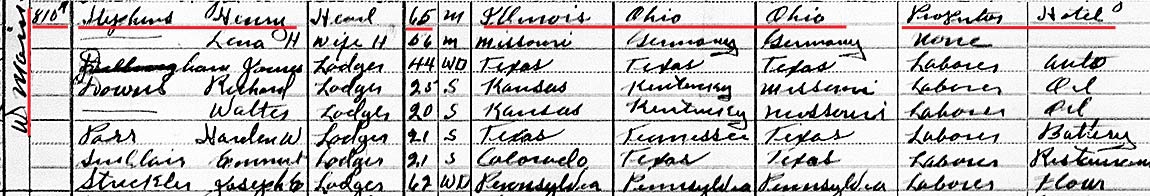 W Main
810 Stephens Henry Head 65 M Illinois Ohio Ohio Propritor Hotel
Lena H Wife H 56 M Missouri Germany Germany None
James Lodger 44 WD Texas Texas Texas Laborer Auto
Downs Richard Lodger 25 S Kansas Kentucky Missouri Laborer Oil
Walter Lodger 20 S Kansas Kentucky Missouri Laborer Oil
Parr Harden W Lodger 21 S Texas Tennessee Texas Laborer Battery
Sinclair Emmut Lodger 21 S Colorado Texas Texas Laborer
Strickler Joseph Lodger 62 WD Pennsylvia Pennsylvia Pennsylvia Laborer Flour